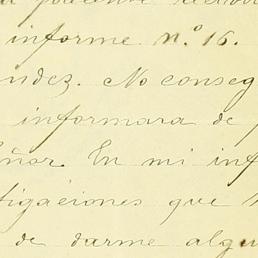 informe n.º 16.
ndez. No conseg
informara de p
eñor. En mi inf
tigaciones que
de darme algu